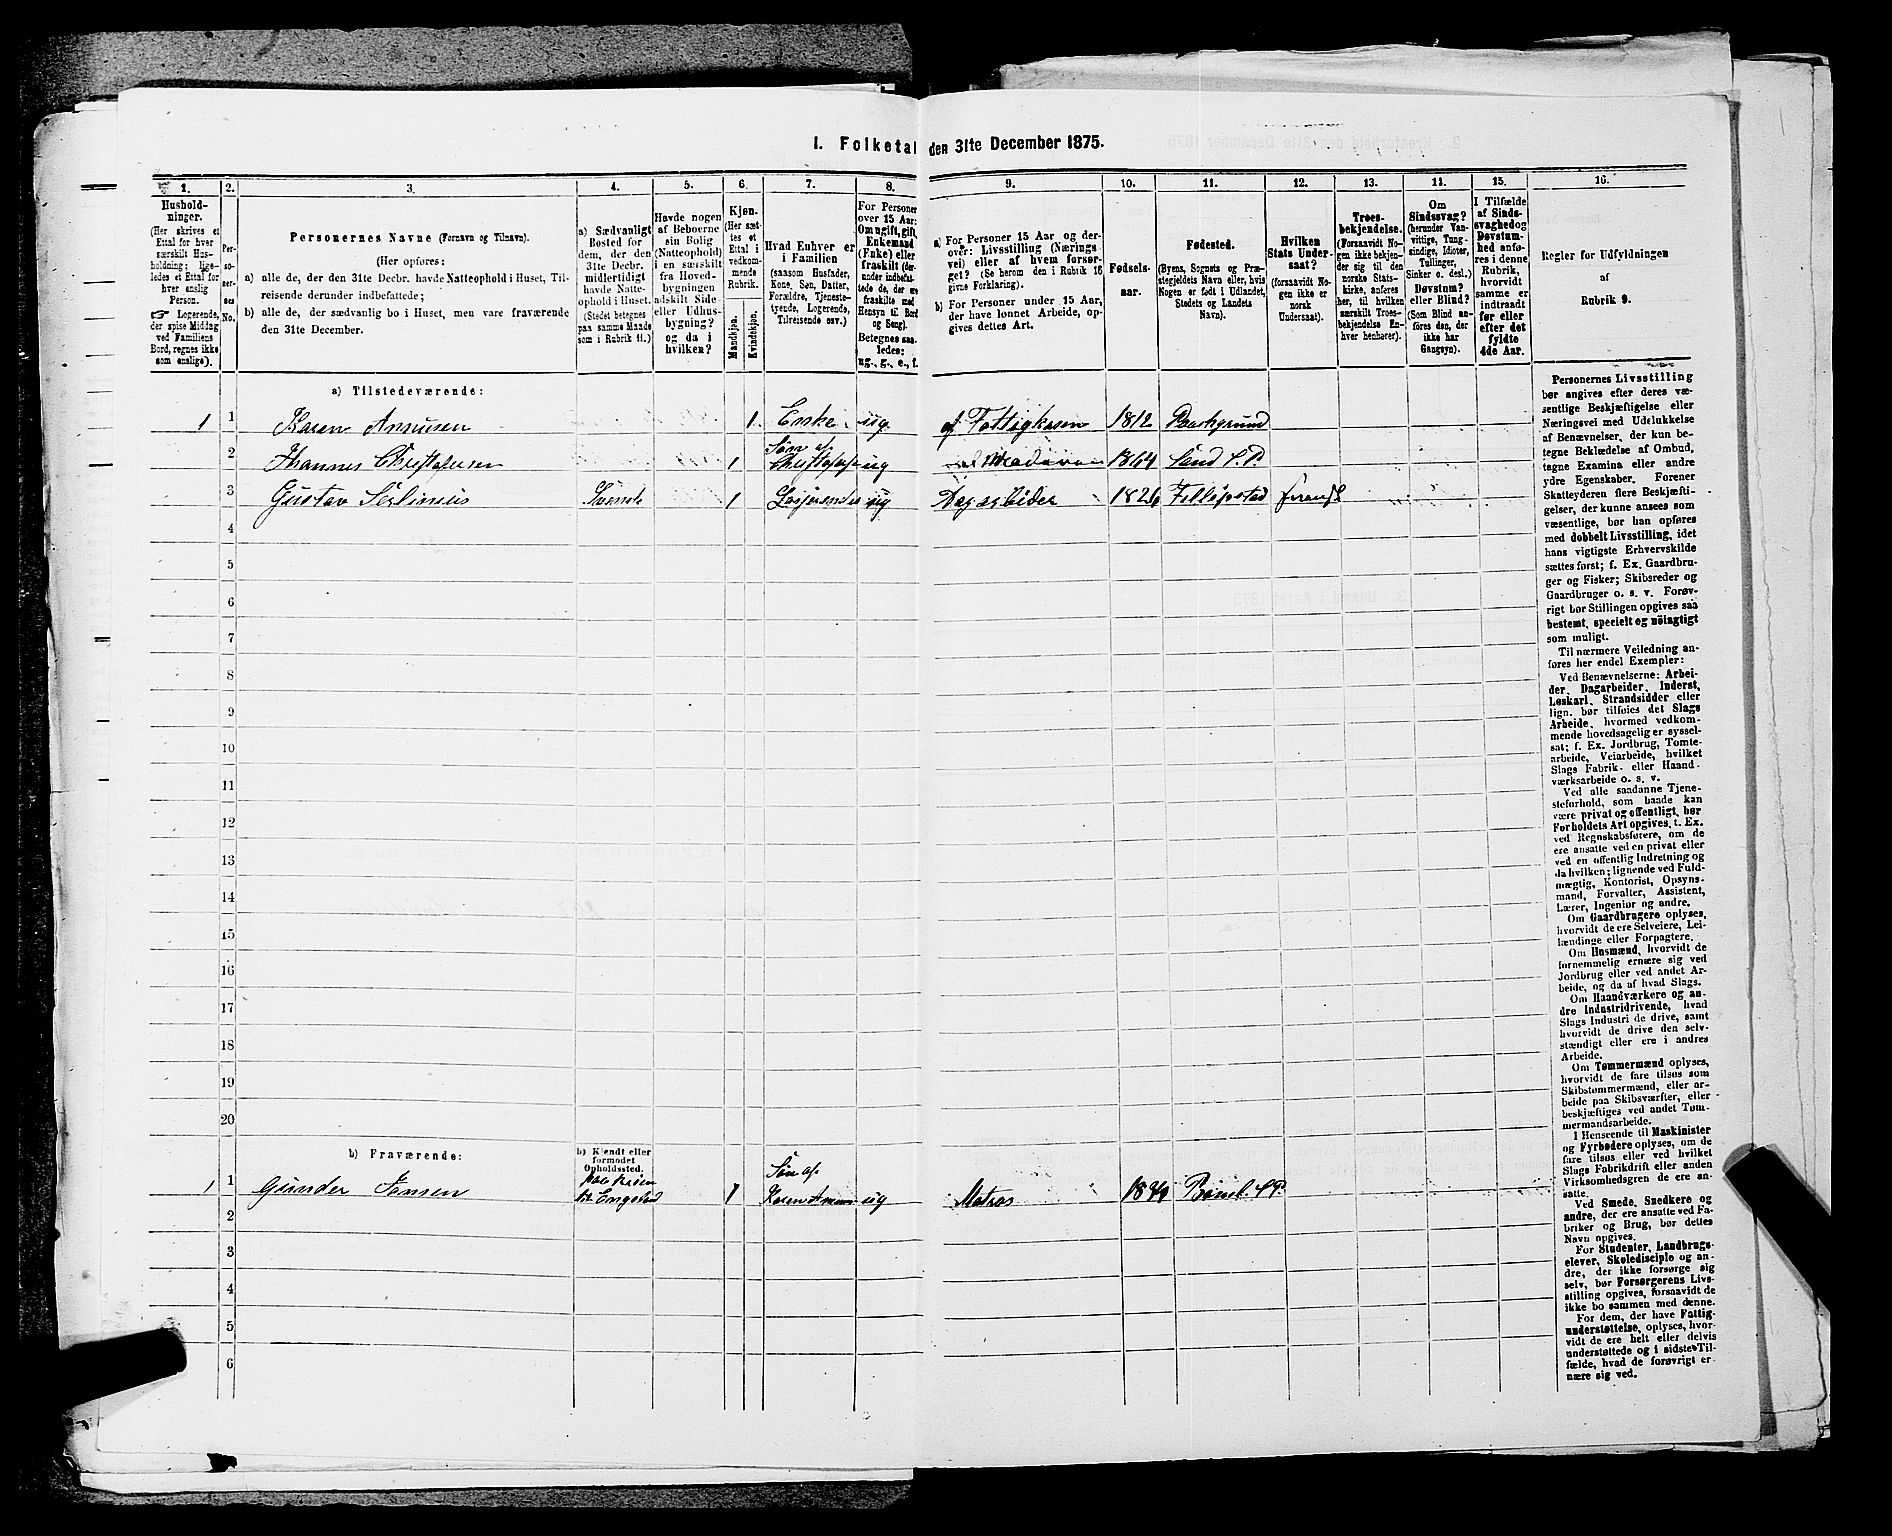 I. Folketal den 31te December 1875.
1. 2. 3. 4. 5. 6. 7. 8. 9. 10. 11. 12. 13. 11. 15. 16.
Hushold-
ninger.
(Her skrives et
Ettal for hver
særskilt Hus-
holdning; lige-
ledes et Ettal for
hver enslig
Person.
☞ Logerende,
der spise Middag
ved Familiens
Bord, regnes ikke
som enslige).
Per-
so-
ner-
nes
No.
Personernes Navne (Fornavn og Tilnavn).
(Her opføres:
a) alle de, der den 31te Decbr. havde Natteophold i Huset, Til-
reisende derunder indbefattede;
b) alle de, der sædvanlig bo i Huset, men vare fraværende
den 31te December.
a) Sædvanligt
Bosted for
dem, der den
31te Decbr.
midlertidigt
havde Natte-
ophold i Huset.
(Stedet betegnes
paa samme Maade
som i Rubrik 11.)
Havde nogen
af Beboerne
sin Bolig
(Natteophold)
i en særskilt
fra Hoved-
bygningen
adskilt Side-
eller Udhus-
bygning?
og da i
hvilken?
Kjøn.
(Her sæt-
tes et
Ettal i
vedkom-
mende
Rubrik.
Mandkjøn.
Kvindekjøn.
Hvad Enhver er
i Familien
(saasom Husfader,
Kone, Søn, Datter,
Forældre, Tjeneste-
tyende, Logerende,
Tilreisende osv.)
For Personer
over 15 Aar:
Om ugift, gift,
Enkemand
(Enke) eller
fraskilt
Hensyn til Bord
og Seng).
Betegnes saa-
ledes:
ug., g., e., f.
a) For Personer 15 Aar og der-
over: Livsstilling (Nærings-
vei) eller af hvem forsør-
get? (Se herom den i Rubrik 16
givne Forklaring).
b) For Personer under 15 Aar,
der have lønnet Arbeide, op-
gives dettes Art.
Fødsels-
aar.
Fødested.
(Byens, Sognets og Præ-
stegjeldets Navn eller, hvis
Nogen er født i Udlandet,
Stedets og Landets
Navn).
Hvilken
Stats Under-
saat?
(forsaavidt No-
gen ikke er
norsk
Undersaat).
Troes-
bekjendelse.
(Forsaavidt No-
gen ikke bekjen-
der sig til den
norske Stats-
kirke, anføres
her, til hvilken
særskilt Troes-
bekjendelse En-
hver henhører).
Om
Sindssvag?
(herunder Van-
vittige, Tung-
sindige, Idioter,
Tullinger,
Sinker o. desl.)
Døvstum?
eller Blind?
(Som Blind an-
føres den, der
ikke har
Gangsyn).
I Tilfælde
af Sinds-
svaghed og
Døvstum-
hed anfø-
res i denne
Rubrik,
hvorvidt
samme er
indtraadt
før eller
efter det
fyldte
4de Aar.
Regler for Udfyldningen
af
Rubrik 9.
a) Tilstedeværende:
1 1 Karen 1 Enke ug. af Fattigkasen 1812
2 Christofersen 1 Søn af ug 1864 Sand S.P.
3 Gustav Svensk 1 Logerende ug Dagarbeider 1826 Fillipstad
4
5
6
7
8
9
10
11
12
13
14
15
16
17
18
19
20
b) Fraværende:
b) Kjendt eller
formodet
Opholdssted.
1 1 Gunder Jansen Paa Reisen til Engeland 1 Søn af Karen ug Matros Bamle S.P.
2
3
4
5
6
Personernes Livsstilling
bør angives efter deres væ-
sentlige Beskjæftigelse eller
Næringsvei med Udelukkelse
af Benævnelser, der kun be-
tegne Beklædelse af Ombud,
tagne Examina eller andre
ydre Egenskaber. Forener
Skatteyderen flere Beskjæfti-
gelser, der kunne ansees som
væsentlige, bør han opføres
med dobbelt Livsstilling, idet
hans vigtigste Erhvervskilde
sættes først; f. Ex. Gaardbru-
ger og Fisker; Skibsreder og
Gaardbruger o. s. v. Forøv-
rigt bør Stillingen opgives saa
bestemt, specielt og nöiagtigt
som muligt.
Til nærmere Veiledning an-
føres her endel Exempler:
Ved Benævnelserne: Arbei-
der, Dagarbeider, Inderst,
Løskarl, Strandsidder eller
lign. bør tilføies det Slags
Arbeide, hvormed vedkom-
mende hovedsagelig er syssel-
sat; f. Ex. Jordbrug, Tomte-
arbeide, Veiarbeide, hvilket
Slags Fabrik- eller Haand-
værksarbeide o. s. v.
Ved alle saadanne Tjene-
steforhold, som baade kan
være privat og offentligt, bør
Forholdets Art opgives, t. Ex.
ved Regnskabsførere, om de
ere ansatte ved en privat eller
ved en offentlig Indretning og
da hvilken; lignende ved Fuld-
mægtig, Kontorist, Opsyns-
mand, Forvalter, Assistent,
Lærer, Ingeniør og andre.
Om Gaardbrugere oplyses,
hvorvidt de ere Selveiere, Lei-
lændinge eller Forpagtere.
Om Husmænd, hvorvidt de
fornemmelig ernære sig ved
Jordbrug eller ved andet Ar-
beide, og da af hvad Slags.
Om Haandværkere og an-
dre Industridrivende, hvad
Slags Industri de drive, samt
hvorvidt de drive den selv-
stændigt eller ere i andres
Arbeide.
Om Tømmermænd oplyses,
hvorvidt de fare tilsøs som
Skibstømmermænd, eller ar-
beide paa Skibsværfter, eller
beskjæftiges ved andet Tøm-
mermandsarbeide.
I Henseende til Maskinister
og Fyrbødere oplyses, om de
fare tilsøs eller ved hvilket
Slags Fabrikdrift eller anden
Virksomhedsgren de ere an-
satte.
Ved Smede, Snedkere og
andre, der ere ansatte ved Fa-
briker og Brug, bør dettes
Navn opgives.
For Studenter, Landbrugs-
elever, Skoledisciple og an-
dre, der ikke forsørge sig
selv, bør Forsørgerens Livs-
stilling opgives, forsaavidt de
ikke bo sammen med denne.
For dem, der have Fattig-
understøttelse, oplyses, hvor-
vidt de ere helt eller delvis
understøttede og i sidste Til-
fælde, hvad de forøvrigt er-
nære sig ved.